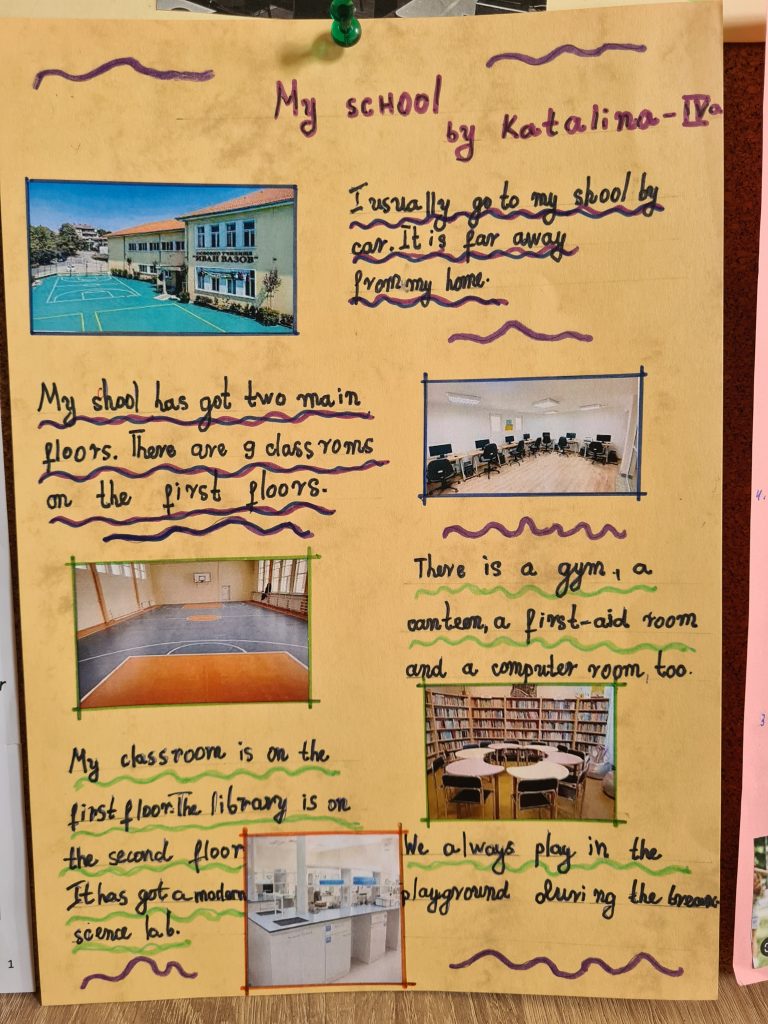 My SCHOOL
by Katalina-IVa
ОСНОВНО УЧИЛИЩЕ
"ИВАН ВАЗОВ"
I usually go to my shool by
car. It is far away
from my home.
My shool has got two main
floors. There are 9 classroms
on the first floors.
There is a gym, a
canteen, a first-aid room
and a computer room, too.
My classroom is on the
first floor. The library is on
the second floor
It has got a modern
science lab.
We always play in the
playground during the
1
4.
3